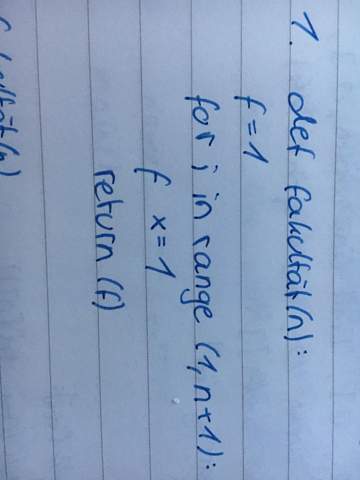 1. def fakultät(n):
f=1
for i in range (1,n+1):
f x=1
return (f)